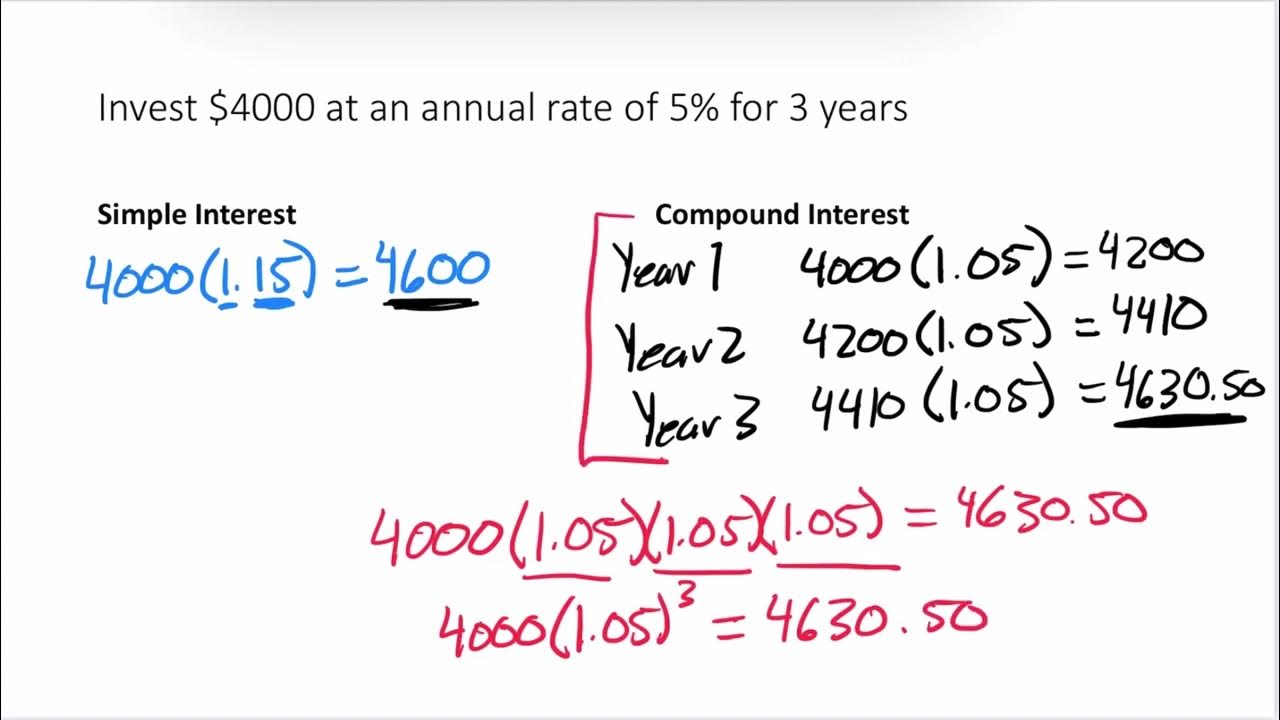 Invest $4000 at an annual rate of 5% for 3 years
Simple Interest
4000(1.15) = 4600
Compound Interest
Year 1 4000(1.05) = 4200
Year 2 4200(1.05) = 4410
Year 3 4410(1.05) = 4630.50
4000(1.05)(1.05)(1.05) = 4630.50
4000(1.05)³ = 4630.50